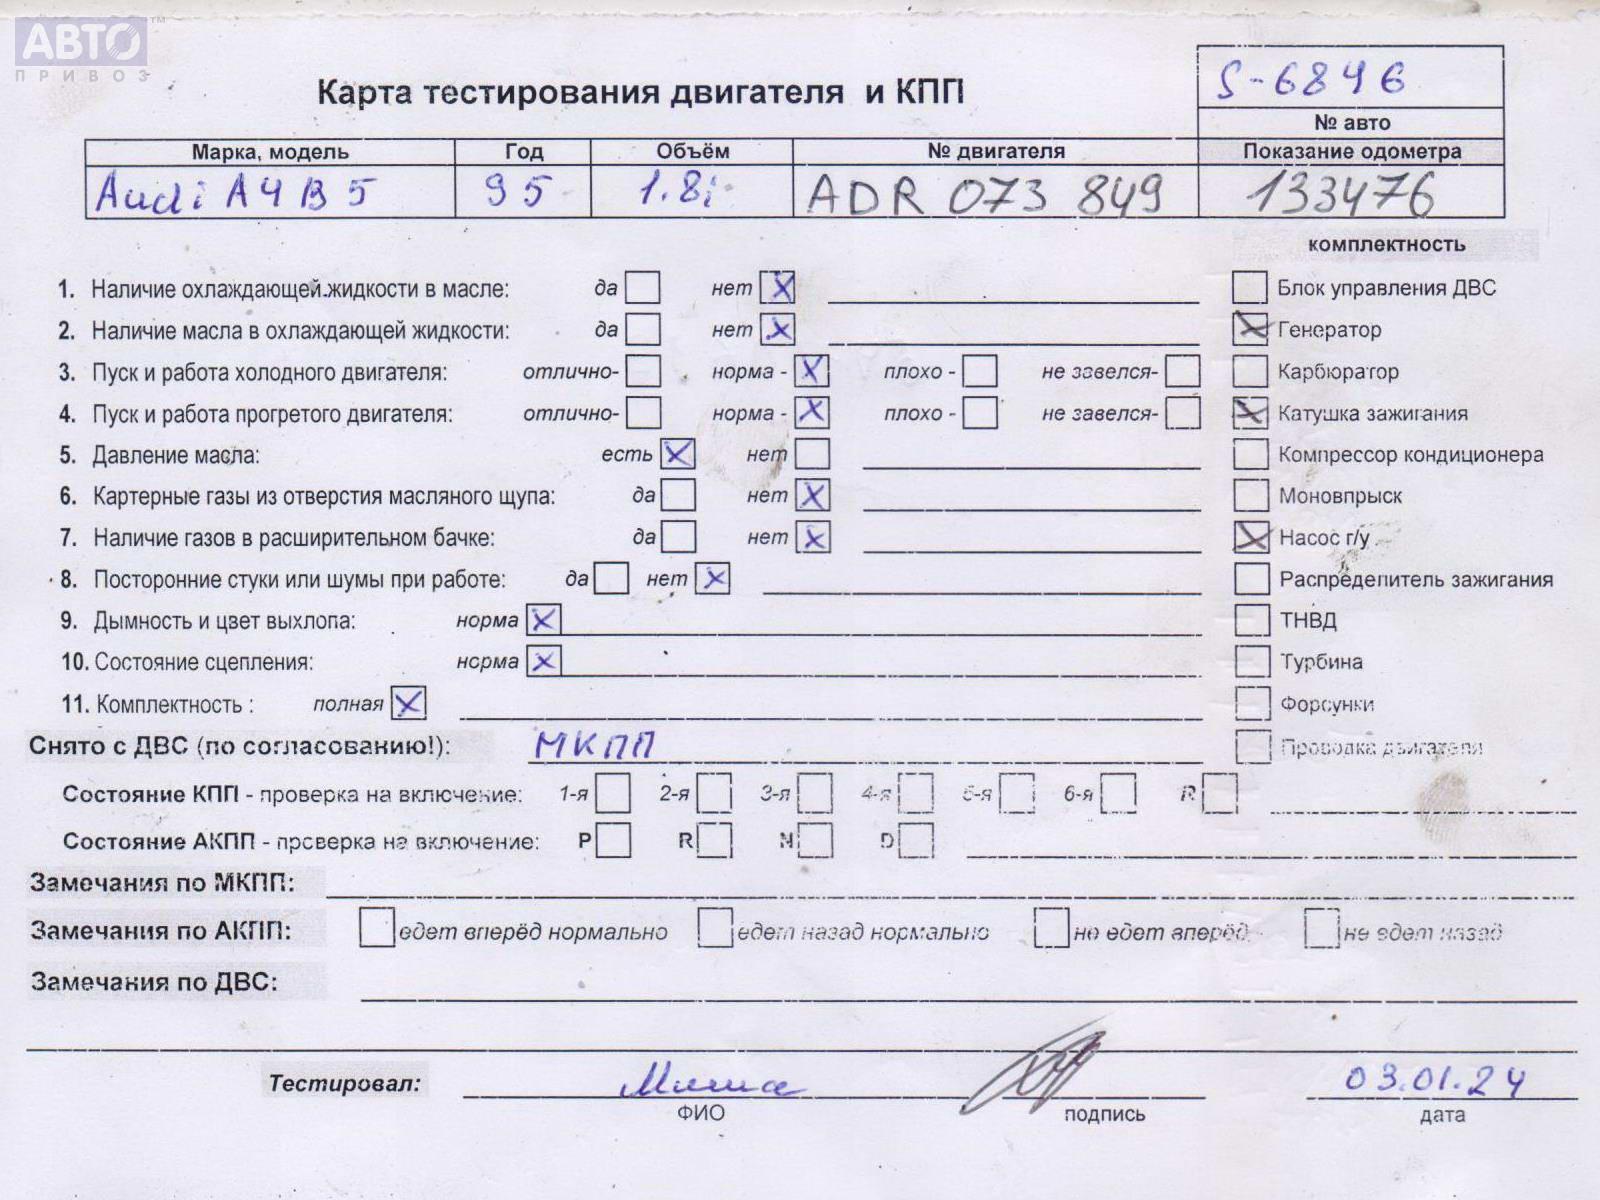 АВТО™
ПРИВОЗ
S-6846
Карта тестирования двигателя и КПП
№ авто
Марка, модель Год Объём № двигателя Показание одометра
Audi A4 B5 95 1.8i ADR 073 849 133476
комплектность
1. Наличие охлаждающей жидкости в масле: да нет X Блок управления ДВС
2. Наличие масла в охлаждающей жидкости: да нет X X Генератор
3. Пуск и работа холодного двигателя: отлично- норма - X плохо - не завелся- Карбюратор
4. Пуск и работа прогретого двигателя: отлично- норма - X плохо - не завелся- X Катушка зажигания
5. Давление масла: есть X нет Компрессор кондиционера
6. Картерные газы из отверстия масляного щупа: да нет X Моновпрыск
7. Наличие газов в расширительном бачке: да нет X X Насос г/у
8. Посторонние стуки или шумы при работе: да нет X Распределитель зажигания
9. Дымность и цвет выхлопа: норма X ТНВД
10. Состояние сцепления: норма X Турбина
11. Комплектность : полная X Форсунки
Снято с ДВС (по согласованию!): МКПП Проводка двигателя
Состояние КПП - проверка на включение: 1-я 2-я 3-я 4-я 5-я 6-я R
Состояние АКПП - проверка на включение: P R N D
Замечания по МКПП:
Замечания по АКПП: едет вперёд нормально едет назад нормально не едет вперёд не едет назад
Замечания по ДВС:
Тестировал: Миша 03.01.24
ФИО подпись дата